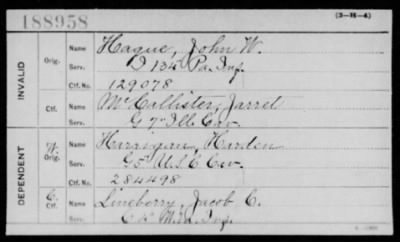 188958
(3-H-4)
INVALID
Orig. Name Hague, John W.
Serv. D 134 Pa. Inf.
Ctf. No. 129078
Ctf. Name McCallister, Jarret
Serv. G 7" Ill Cav
DEPENDENT
W. Orig. Name Harden
Serv. G 5" U.S.C Cav.
Ctf. No. 284498
C. Ctf. Name Lineberry, Jacob C.
Serv. Inf.